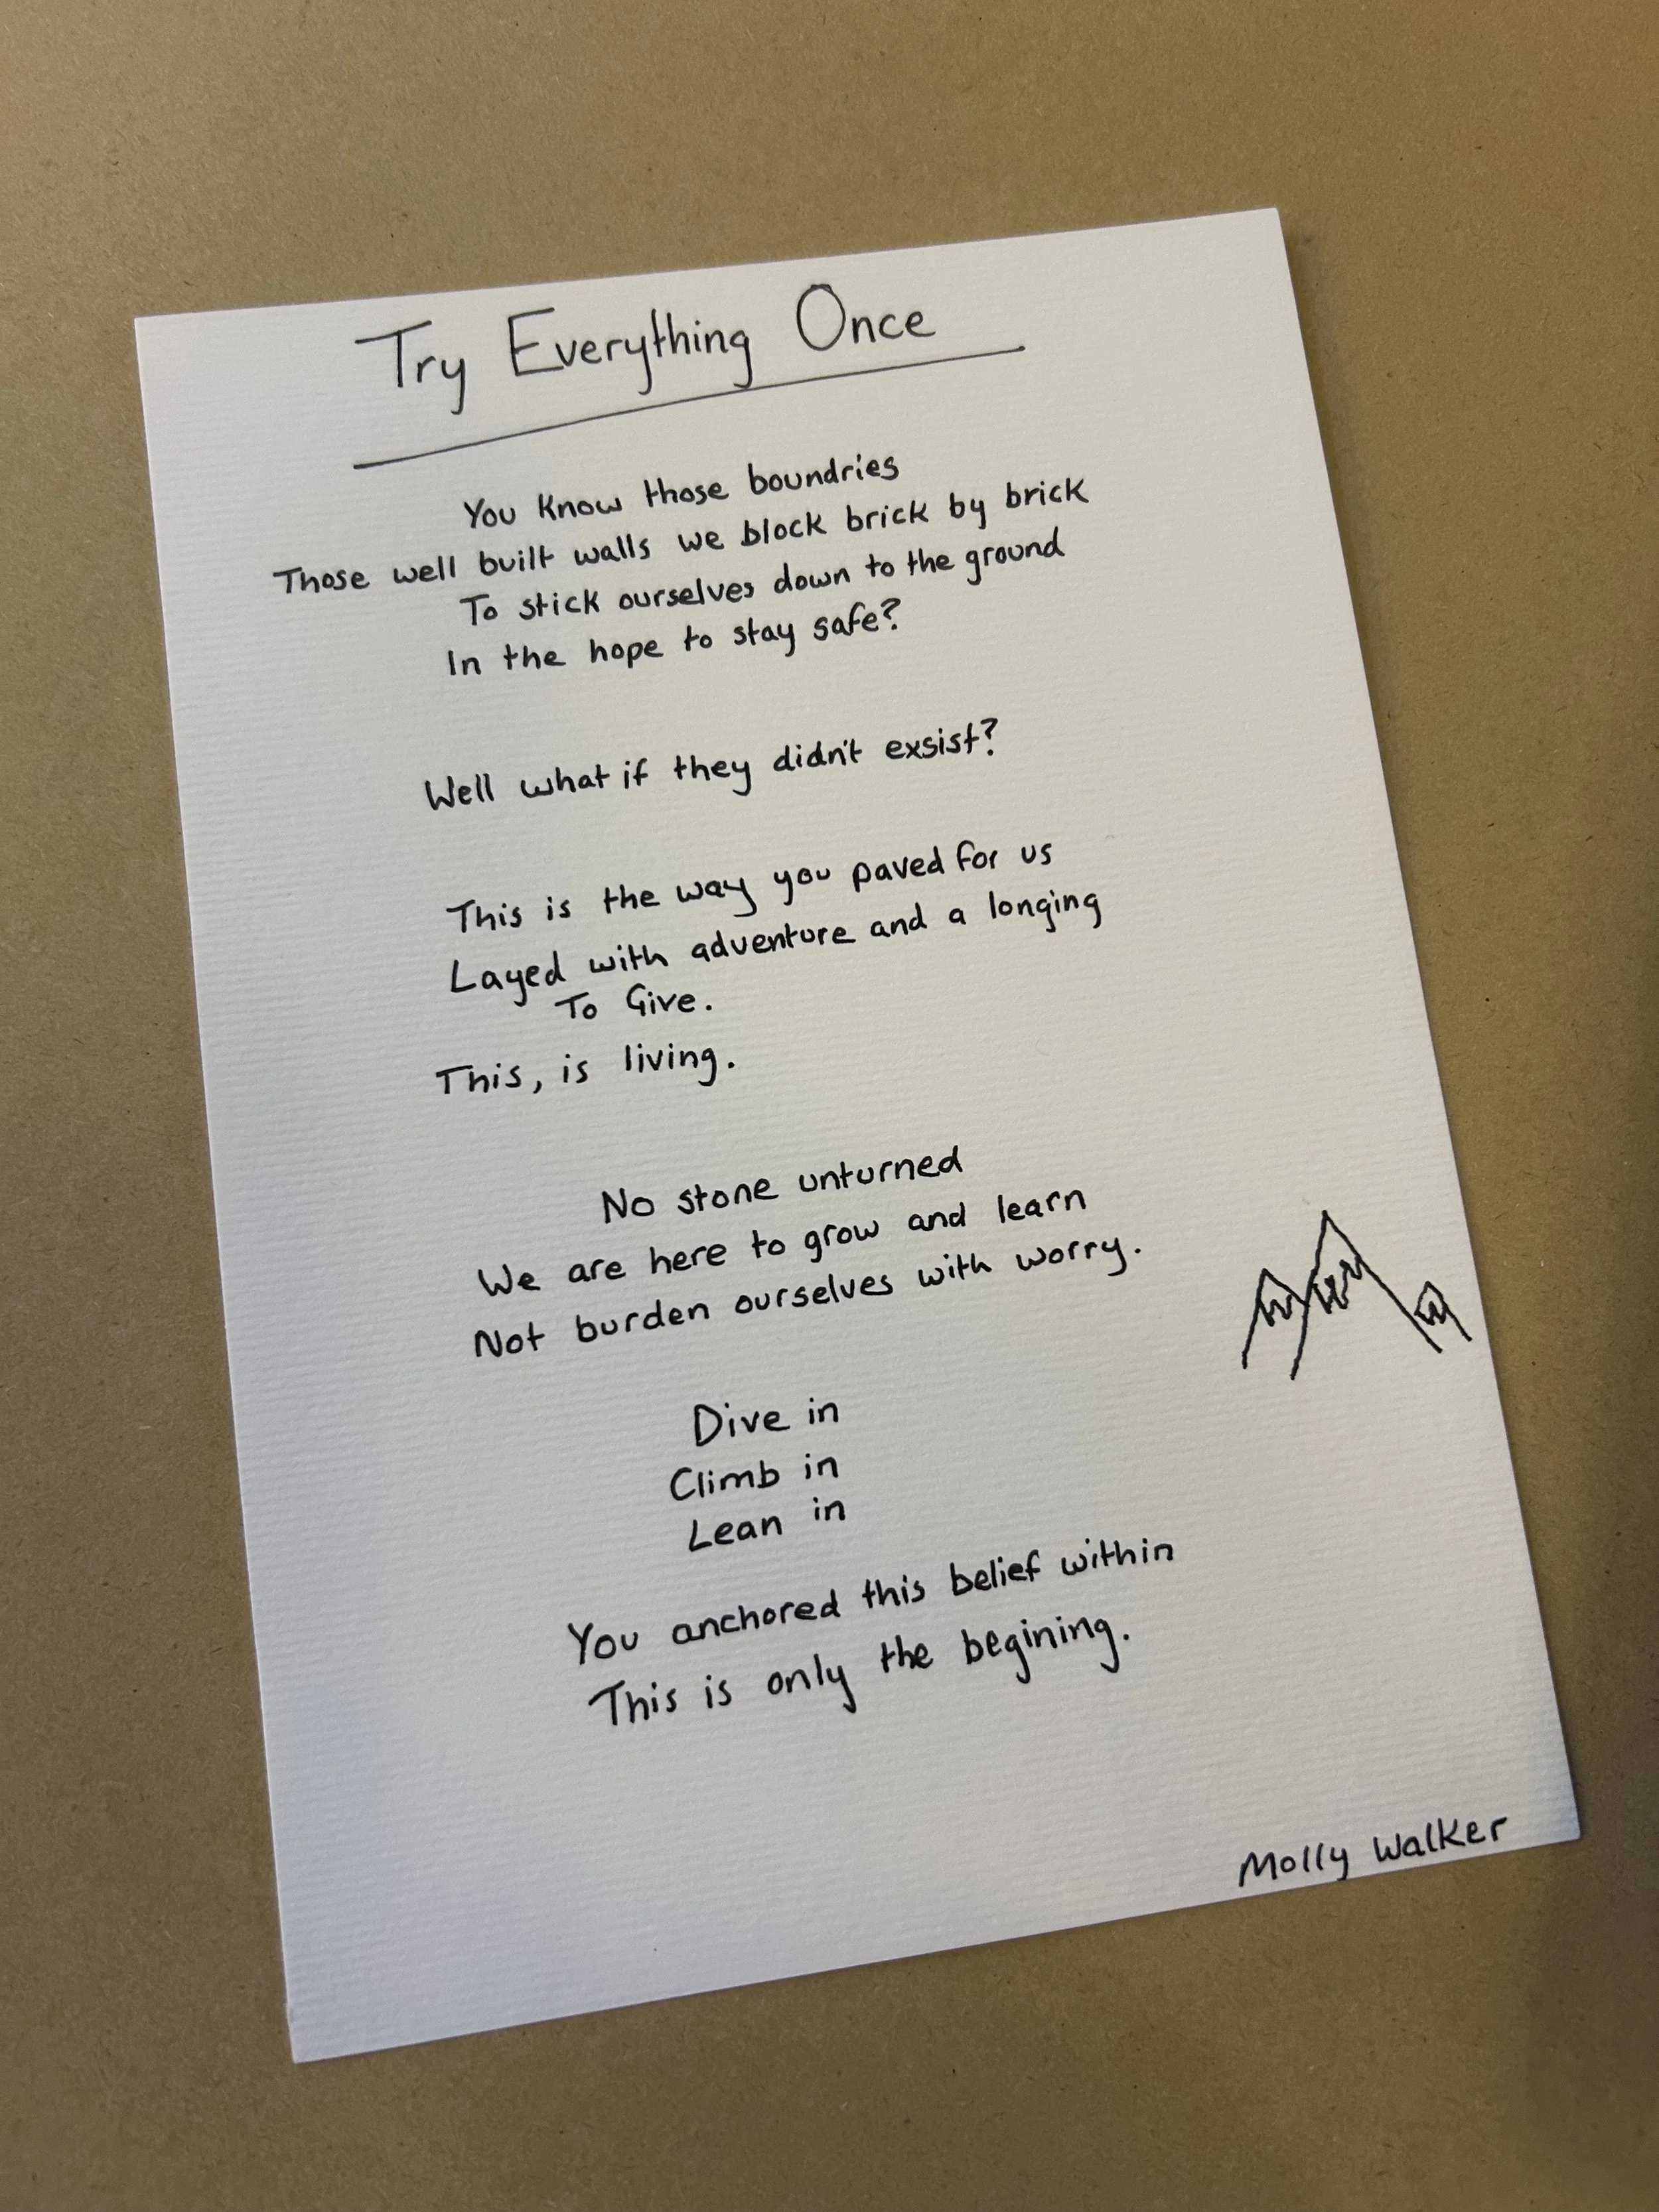 Try Everything Once
You know those boundries
Those well built walls we block brick by brick
To stick ourselves down to the ground
In the hope to stay safe?
Well what if they didn't exsist?
This is the way you paved for us
Layed with adventure and a longing
To Give.
This, is living.
No stone unturned
We are here to grow and learn
Not burden ourselves with worry.
Dive in
Climb in
Lean in
You anchored this belief within
This is only the begining.
Molly Walker